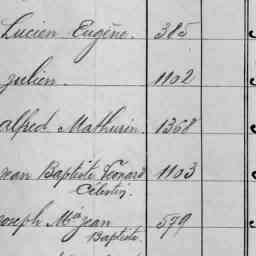 Lucien Eugène. 385
Julien. 1102
Alfred Mathurin. 1368
Jean Baptiste Léonard 1103
Célestin.
Joseph Mie Jean 579
Baptiste.